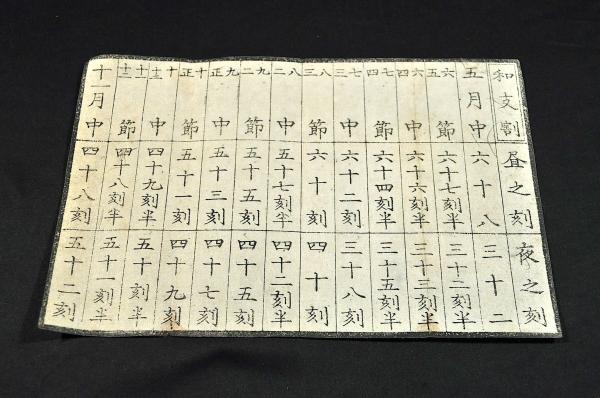 和支割 昼之刻 夜之刻
五月中 六十八 三十二
六五 節 六十七刻半 三十二刻半
六四 中 六十六刻半 三十三刻半
七四 節 六十四刻半 三十五刻半
七三 中 六十二刻 三十八刻
八三 節 六十刻 四十刻
八二 中 五十七刻半 四十二刻半
九二 節 五十五刻 四十五刻
九正 中 五十三刻 四十七刻
十正 節 五十一刻 四十九刻
十十二 中 四十九刻半 五十刻半
十一十二 節 四十八刻半 五十一刻半
十一月中 四十八刻 五十二刻